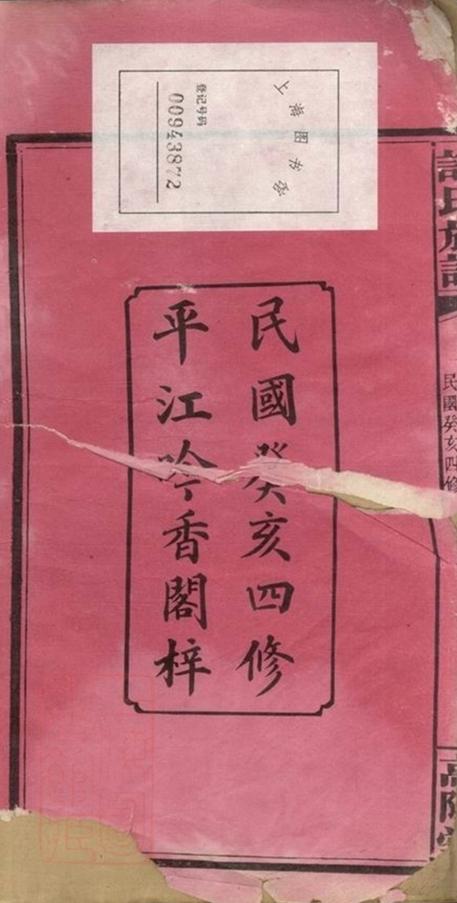 上海图书馆
登记号码
00943872
民國癸亥四修
平江吟香閣梓
許氏族譜
民國癸亥四修
高陽堂